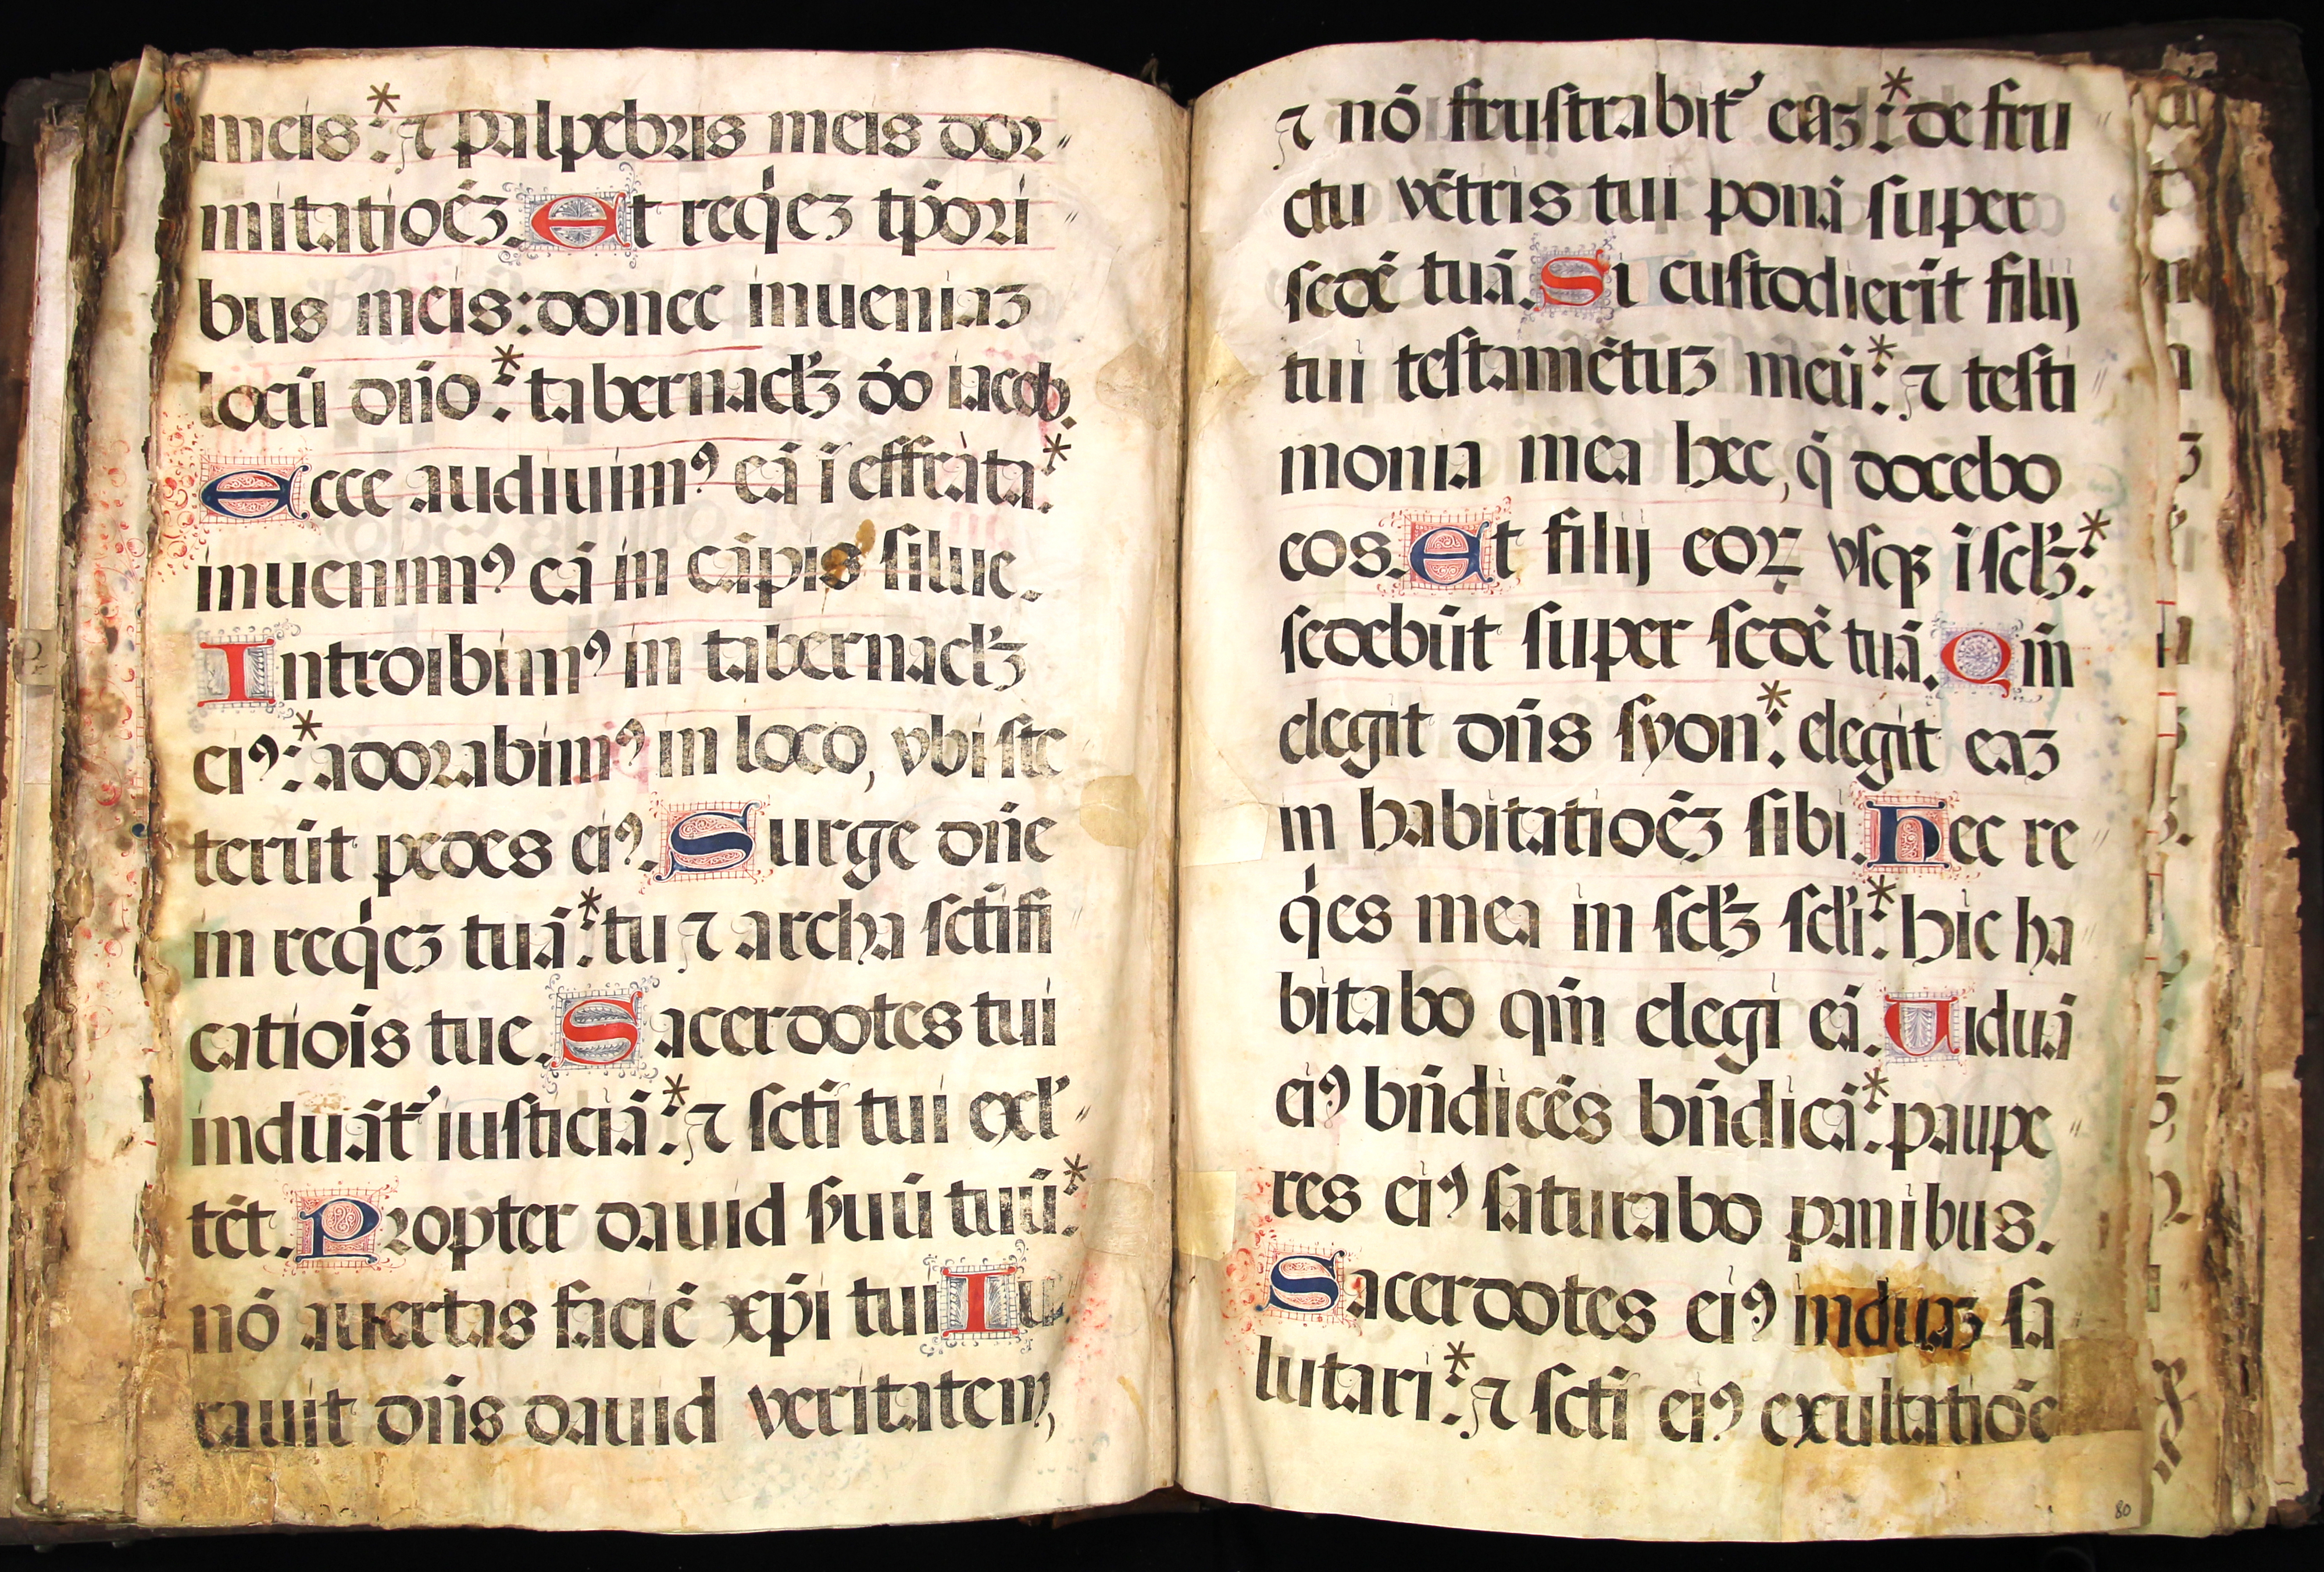 meis:* ⁊ palpebris meis dor〃
mitatioēʒ. Et reqͥeʒ tp̄ori〃
bus meis: donec inueniaʒ
locū dn̄o:* tabernacl̓ʒ d̄o iacob.
Ecce audiuimꝰ eā ī effrata:*
inuenimꝰ eā in cāpis silue.
Introibimꝰ in tabernacl̓ʒ
eiꝰ:* adorabimꝰ in loco, vbi ste
terūt pedes eiꝰ. Surge dn̄e
in reqͥeʒ tuā:* tu ⁊ archa sct̄ifi
catiōis tue. Sacerdotes tui
induāt᷑ iusticiā:* ⁊ sct̄i tui exl̓〃
tēt. Propter dauid ẜuū tuū:*
nō auertas faciē xp̄i tui Iu
rauit dn̄s dauid veritatem,
⁊ nō frustrabit᷑ eaʒ:* de fru〃
ctu vētris tui ponā super
sedē tuā. Si custodierīt filij
tui testamētuʒ meū:* ⁊ testi〃
monia mea hec, q̄ docebo
eos. Et filij eoꝝ vsqꝫ ī scl̓ʒ:*
sedebūt super sedē tuā. Qm̄
elegit dn̄s syon:* elegit eaʒ
in habitatioēʒ sibi. Hec re〃
qͥes mea in scl̓ʒ scl̓i:* hic ha〃
bitabo qm̄ elegi eā. Uiduā
eiꝰ bn̄dicēs bn̄dicā:* paupe〃
res eiꝰ saturabo panibus.
Sacerdotes eiꝰ induaʒ sa
lutari:* ⁊ sct̄i eiꝰ exultatiōe
80